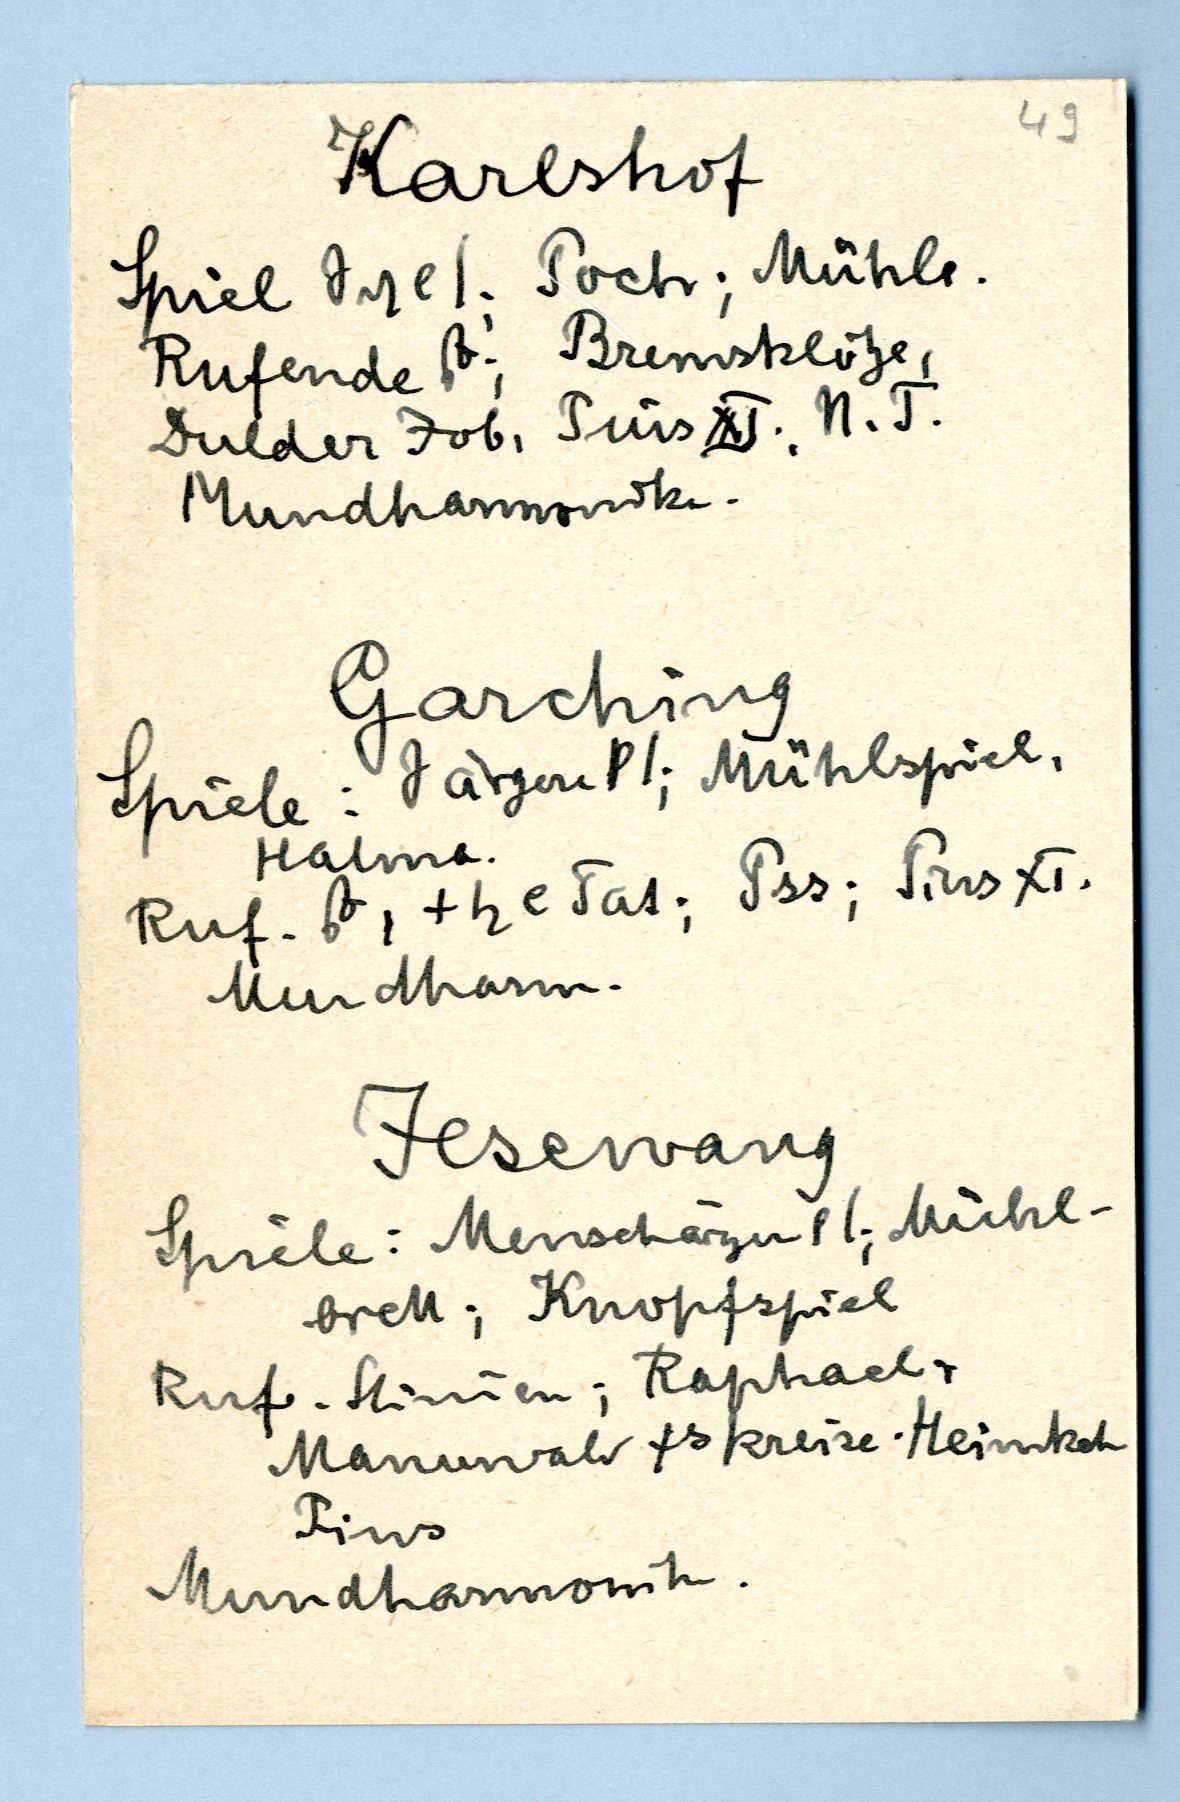 49
Karlshof
Spiel ; Poch; Mühle.
Rufende ; Bremsklötze,
Dulder Job, Pius XI., N.T.
Mundharmonika.
Garching
Spiele: ; Mühlspiel,
Halma.
Ruf. , Tat; Pss; Pius XI.
Mundharm.
Jesewang
Spiele: ; Mühl-
brett; Knopfspiel
Ruf. Stimmen; Raphael,
kreise. Heimkeh
Pius
Mundharmonik.